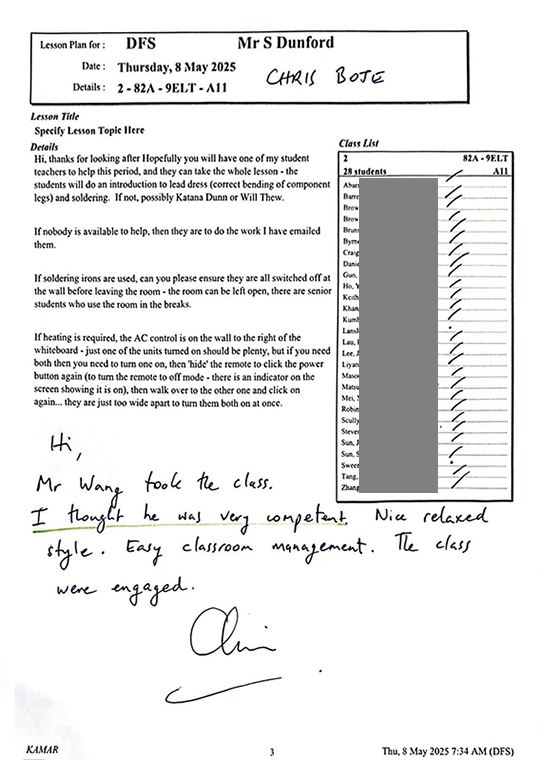 Lesson Plan for : DFS Mr S Dunford
Date : Thursday, 8 May 2025
CHRIS BOJE
Details : 2 - 82A - 9ELT - A11
Lesson Title
Specify Lesson Topic Here
Details
Hi, thanks for looking after Hopefully you will have one of my student
teachers to help this period, and they can take the whole lesson - the
students will do an introduction to lead dress (correct bending of component
legs) and soldering. If not, possibly Katana Dunn or Will Thew.
If nobody is available to help, then they are to do the work I have emailed
them.
If soldering irons are used, can you please ensure they are all switched off at
the wall before leaving the room - the room can be left open, there are senior
students who use the room in the breaks.
If heating is required, the AC control is on the wall to the right of the
whiteboard - just one of the units turned on should be plenty, but if you need
both then you need to turn one on, then 'hide' the remote to click the power
button again (to turn the remote to off mode - there is an indicator on the
screen showing it is on), then walk over to the other one and click on
again... they are just too wide apart to turn them both on at once.
Class List
2 82A - 9ELT
28 students A11
Abar
Barre
Brow
Brow
Brun
Byrne
Craig
Danie
Guo,
Ho, Y
Keith
Khan
Kumb
Lansl
Lau,
Lee, J
Liyan
Maso
Matsu
Mei,
Robin
Scully
Steve
Sun, J
Sun, S
Sween
Tang,
Zhang
Hi,
Mr Wang took the class.
I thought he was very competent. Nice relaxed
style. Easy classroom management. The class
were engaged.
KAMAR 3 Thu, 8 May 2025 7:34 AM (DFS)